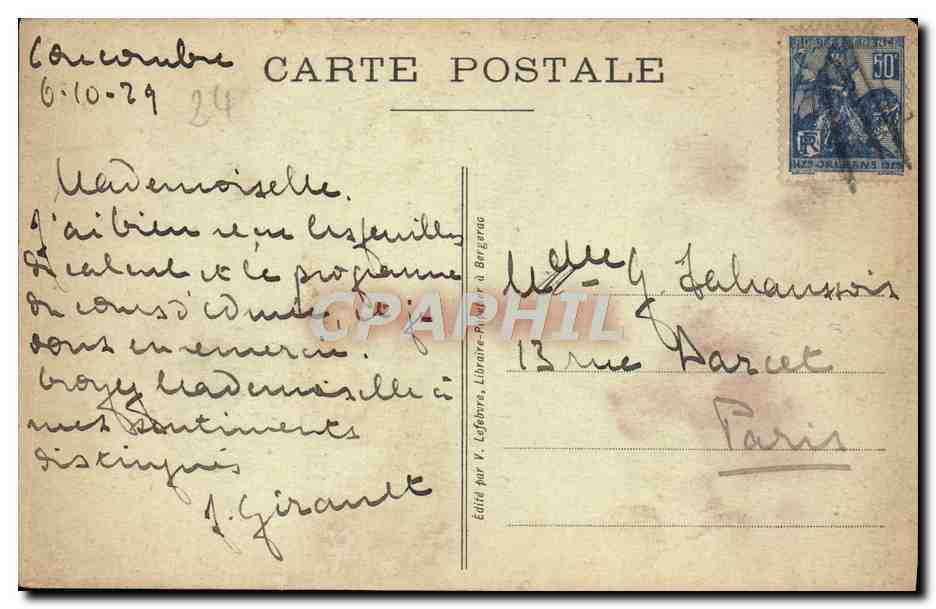 CARTE POSTALE
6-10-29
24
Mademoiselle.
J'ai bien reçu les feuilles
de calcul et le programme
du cours d'
vous en remercie.
Croyez Mademoiselle à
mes sentiments
distingués
J. Girault
Édité par V. Lefebvre, Libraire-Papetier à Bergerac
POSTES FRANCE
50c
RF
1429-ORLÉANS 1929
Melle G.
13 rue Darcet
Paris
CPAPHIL